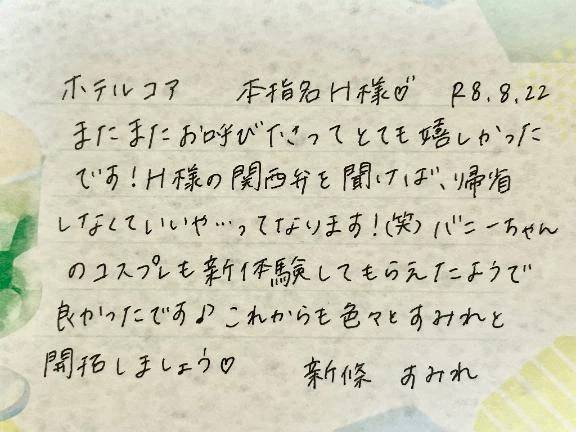 ホテルコア 本指名H様♡ R8.8.22
またまたお呼び下さってとても嬉しかった
です!H様の関西弁を聞けば、帰省
しなくていいや…ってなります!(笑)バニーちゃん
のコスプレも新体験してもらえたようで
良かったです♪これからも色々とすみれと
開拓しましょう♡ 新條 すみれ